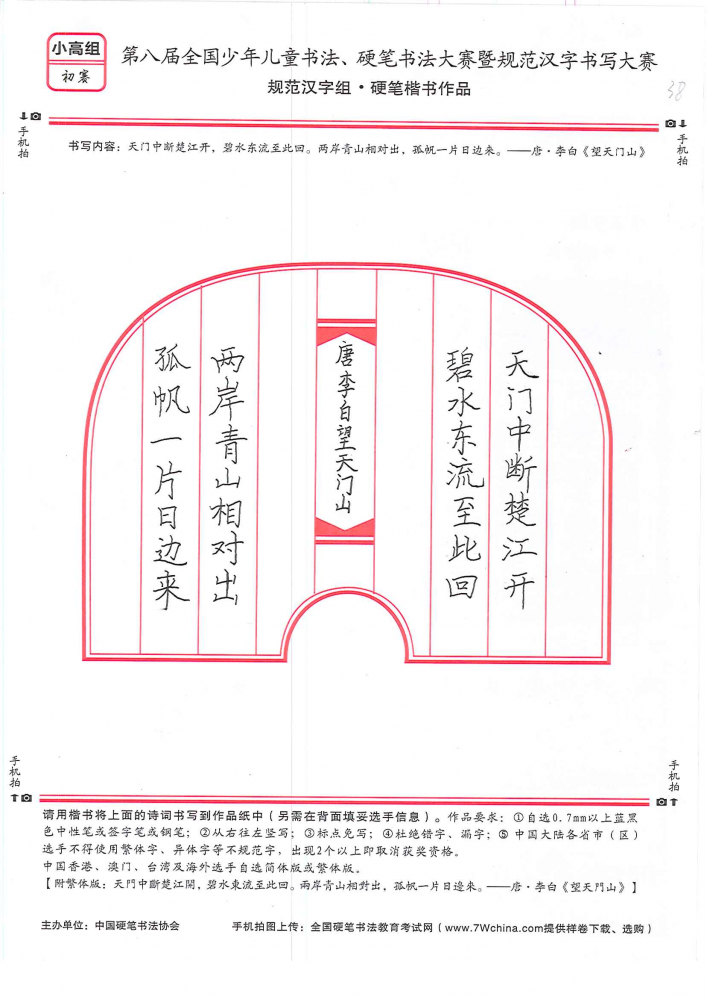 小高组
初赛
第八届全国少年儿童书法、硬笔书法大赛暨规范汉字书写大赛
规范汉字组·硬笔楷书作品
38
手机拍
手机拍
书写内容：天门中断楚江开，碧水东流至此回。两岸青山相对出，孤帆一片日边来。——唐·李白《望天门山》
天门中断楚江开
碧水东流至此回
唐李白望天门山
两岸青山相对出
孤帆一片日边来
手机拍
手机拍
请用楷书将上面的诗词书写到作品纸中（另需在背面填妥选手信息）。作品要求：①自选0.7mm以上蓝黑
色中性笔或签字笔或钢笔；②从右往左竖写；③标点免写；④杜绝错字、漏字；⑤ 中国大陆各省市（区）
选手不得使用繁体字、异体字等不规范字，出现2个以上即取消获奖资格。
中国香港、澳门、台湾及海外选手自选简体版或繁体版。
【附繁体版：天門中斷楚江開，碧水東流至此回。兩岸青山相對出，孤帆一片日邊來。——唐·李白《望天門山》】
主办单位：中国硬笔书法协会
手机拍图上传：全国硬笔书法教育考试网（www.7Wchina.com提供样卷下载、选购）